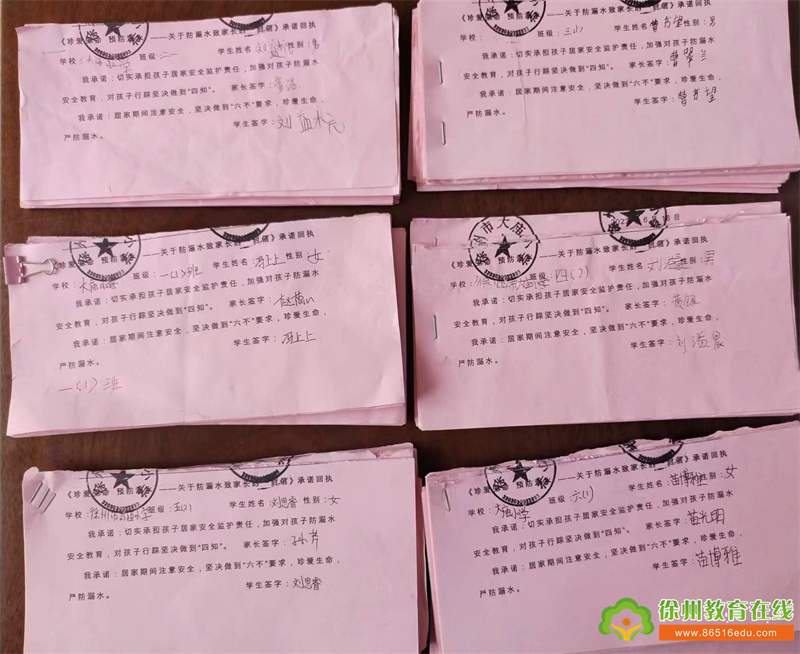 《珍爱 预防 ——关于防溺水致家长的 》承诺回执
学校: 班级:二 学生姓名 性别:男
我承诺:切实承担孩子居家安全监护责任,加强对孩子防溺水
安全教育,对孩子行踪坚决做到“四知”。 家长签字:
我承诺:居家期间注意安全,坚决做到“六不”要求,珍爱生命,
严防溺水。 学生签字:刘
《珍爱 预防 ——关于防溺水致家长的 》承诺回执
学校: 班级:三 学生姓名 曾 望 性别:男
我承诺:切实承担孩子居家安全监护责任,加强对孩子防溺水
安全教育,对孩子行踪坚决做到“四知”。 家长签字:曾翠兰
我承诺:居家期间注意安全,坚决做到“六不”要求,珍爱生命,
严防溺水。 学生签字:曾 望
《珍爱 预防 ——关于防溺水致家长的一封信》承诺回执
学校: 班级:一(1)班 学生姓名 冯上上 性别:女
我承诺:切实承担孩子居家安全监护责任,加强对孩子防溺水
安全教育,对孩子行踪坚决做到“四知”。 家长签字:赵
我承诺:居家期间注意安全,坚决做到“六不”要求,珍爱生命,
严防溺水。 学生签字:冯上上
一(1)班
市大庙
《珍爱 预防 ——关于防溺水致家长的一封信》承诺回执
学校: 班级:四(2) 学生姓名 刘 性别:男
我承诺:切实承担孩子居家安全监护责任,加强对孩子防溺水
安全教育,对孩子行踪坚决做到“四知”。 家长签字:黄
我承诺:居家期间注意安全,坚决做到“六不”要求,珍爱生命,
严防溺水。 学生签字:刘 晨
《珍爱 预防 ——关于防溺水致家长的一封信》承诺回执
学校:徐州市大庙小学 班级:五(2) 学生姓名 刘思睿 性别:女
我承诺:切实承担孩子居家安全监护责任,加强对孩子防溺水
安全教育,对孩子行踪坚决做到“四知”。 家长签字:孙 芹
我承诺:居家期间注意安全,坚决做到“六不”要求,珍爱生命,
严防溺水。 学生签字:刘思睿
《珍爱 预防 ——关于防溺水致家长的一封信》承诺回执
学校:大庙小学 班级:六(1) 学生姓名 苗博雅 性别:女
我承诺:切实承担孩子居家安全监护责任,加强对孩子防溺水
安全教育,对孩子行踪坚决做到“四知”。 家长签字:苗光明
我承诺:居家期间注意安全,坚决做到“六不”要求,珍爱生命,
严防溺水。 学生签字:苗博雅
徐州教育在线
www.86516edu.com